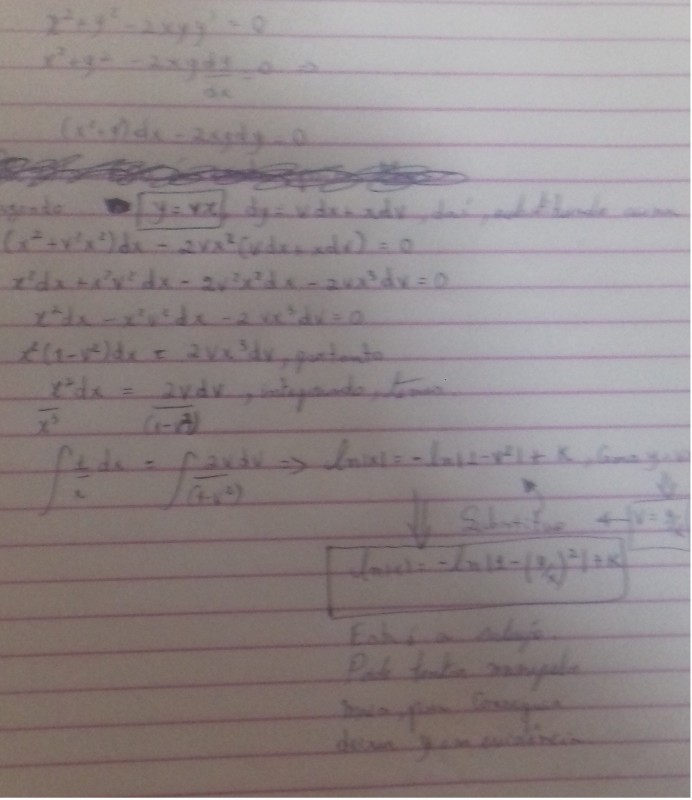 x² + y² - 2xyy' = 0
x² + y² - 2xy dy/dx = 0 ⇒
(x²+y²)dx - 2xydy = 0
y = vx, dy = vdx + xdv, daí, substituindo
(x² + v²x²)dx - 2vx²(vdx + xdv) = 0
x²dx + x²v²dx - 2v²x²dx - 2vx³dv = 0
x²dx - x²v²dx - 2vx³dv = 0
x²(1-v²)dx = 2vx³dv, portanto
x²dx/x³ = 2vdv/(1-v²), integrando, temos
∫ 1/x dx = ∫ 2vdv/(1-v²) ⇒ ln|x| = -ln|1-v²| + K, Como y=v
Substituo ← v = y/x
ln|x| = -ln|1-(y/x)²| + K
Esta é a solução.
Pode tentar manipular
mais para conseguir
deixar y em evidência